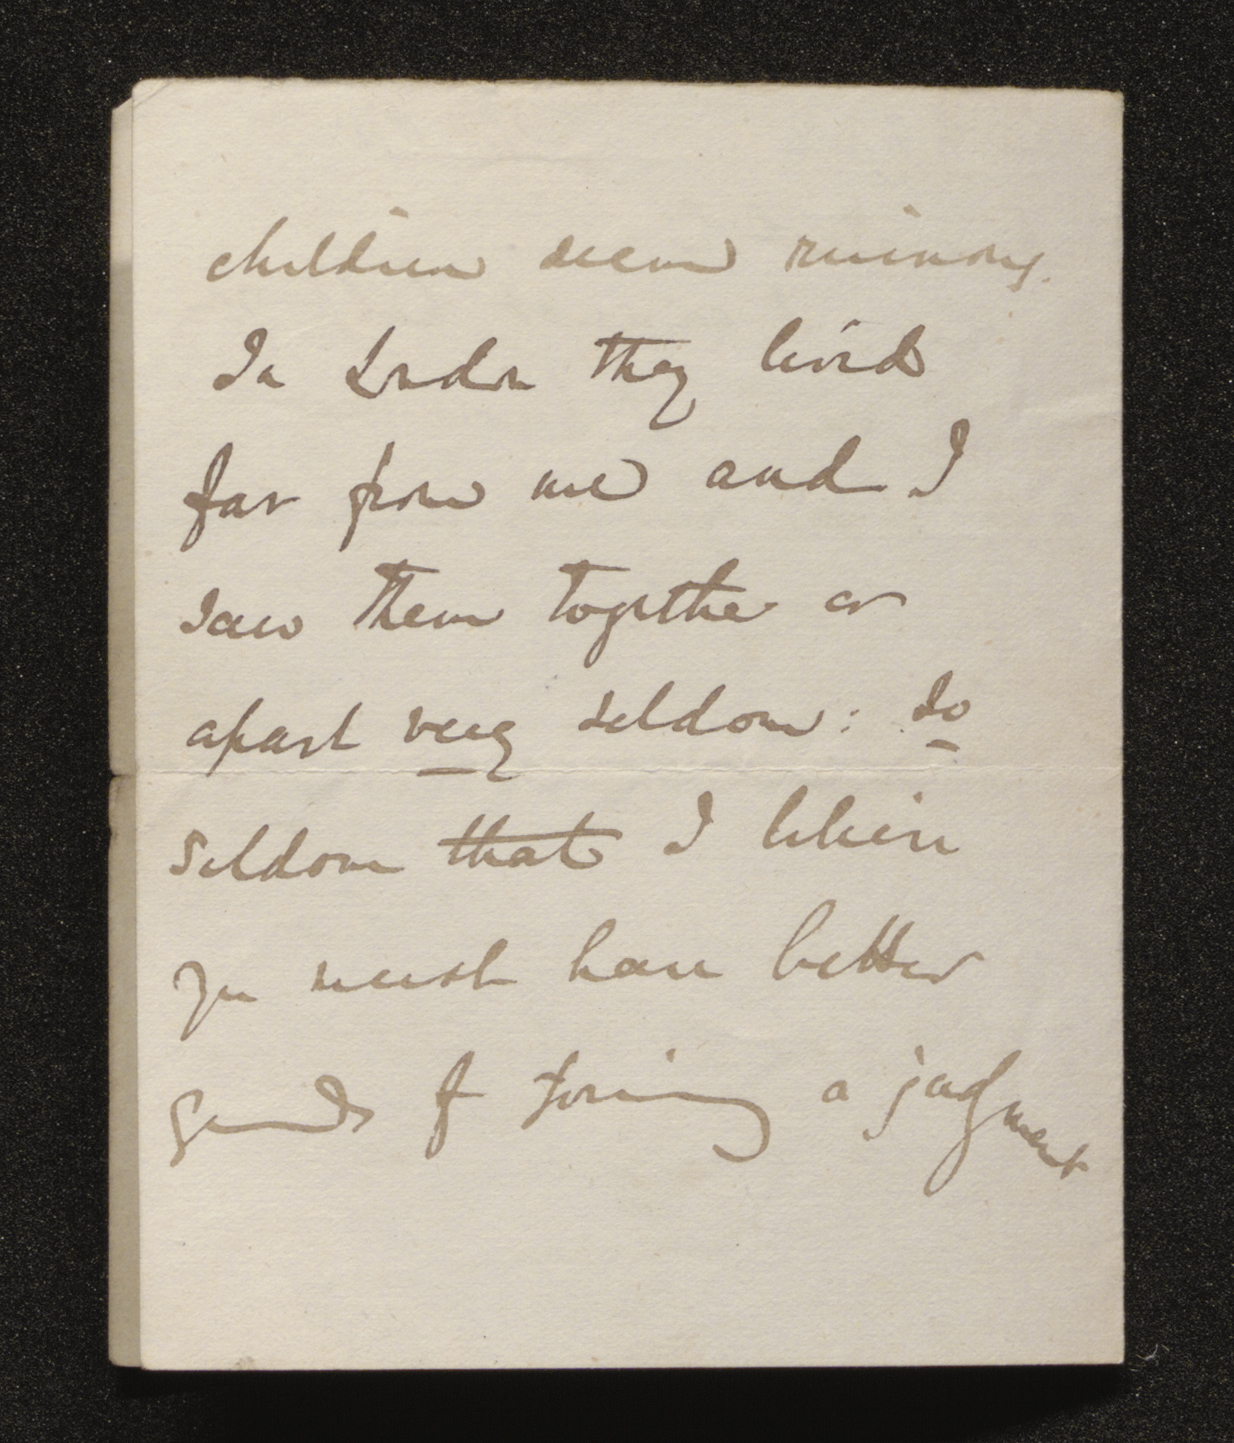 children seem
In London they lived
far from me and I
saw them together or
apart very seldom: so
seldom that I believe
you must have better
grounds of forming a judgment